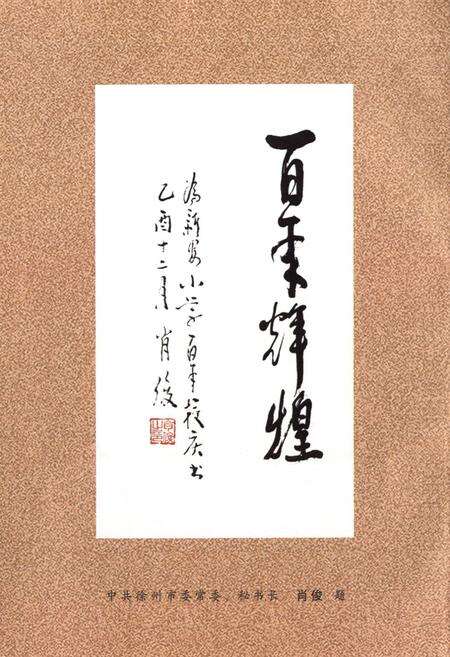 百年辉煌
为新安小学百年校庆书
乙酉十二月 肖俊
中共徐州市委常委、秘书长 肖俊 题